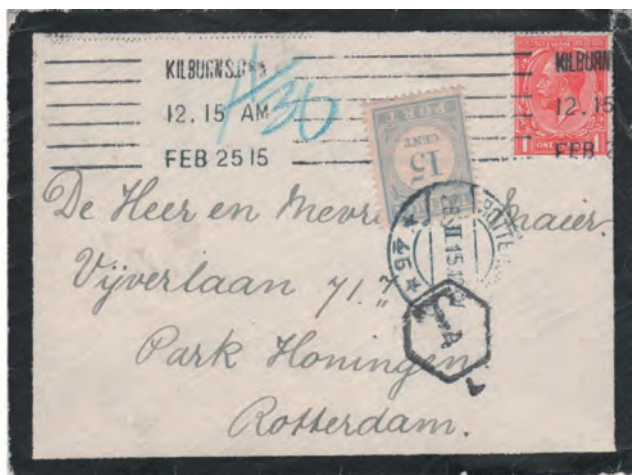 KILBURN S.O.
12. 15 AM
FEB 25 15
1/30
KILBURN
12. 15
FEB 2
1 ONE
PORT
15
CENT
De Heer en Mevr Maier.
Vijverlaan 71.
Park Honingen
Rotterdam.
ROTTE
45
T